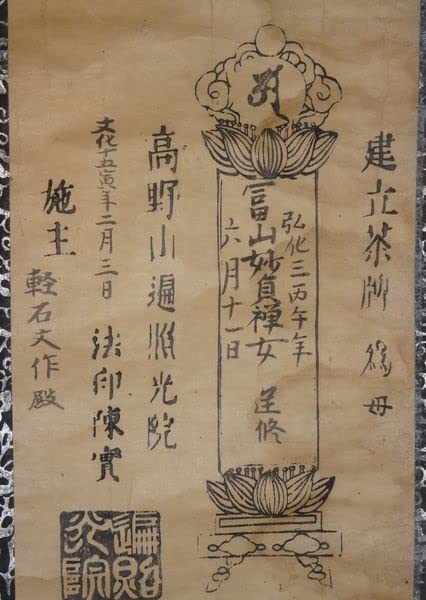 建立茶牌 為母
弘化三丙午年
冨山妙貞禅女 逆修
六月十一日
高野山遍照光院
文化十五寅年二月三日 法印陳實
施主 軽石文作殿
遍照
光院